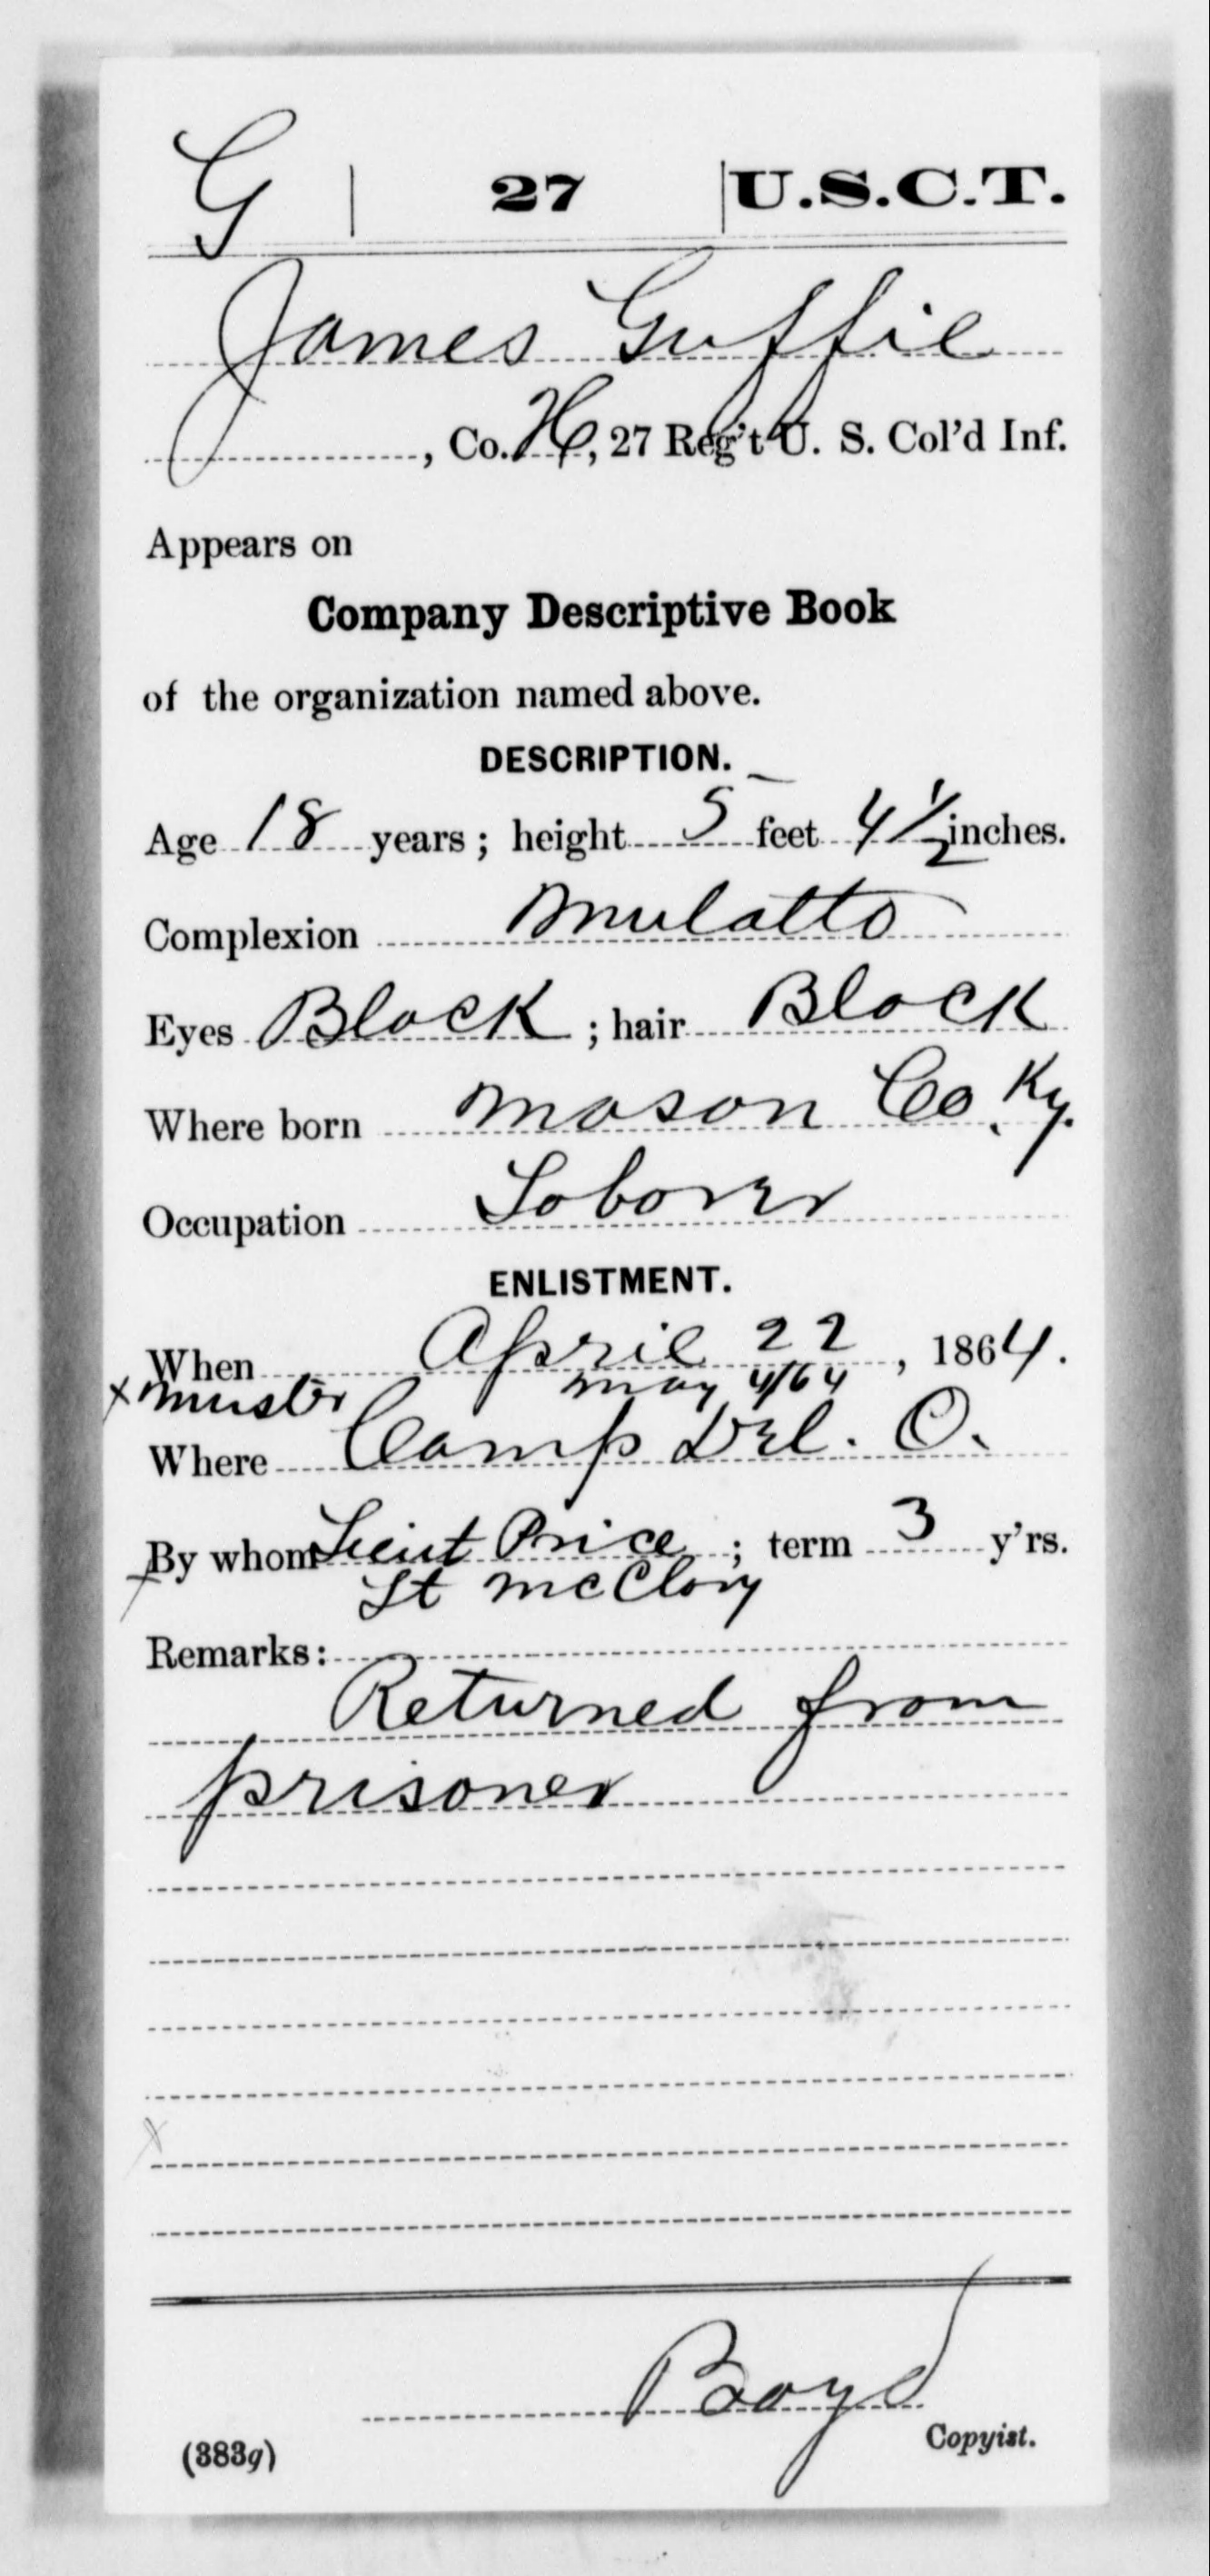 G | 27 | U.S.C.T.
James Guffie
, Co. H, 27 Reg't U. S. Col'd Inf.
Appears on
Company Descriptive Book
of the organization named above.
DESCRIPTION.
Age 18 years; height 5 feet 4 1/2 inches.
Complexion Mulatto
Eyes Black; hair Black
Where born Mason Co. Ky.
Occupation Laborer
ENLISTMENT.
When April 22, 1864.
x Muster May 4/64
Where Camp Del. O.
By whom Lieut Price; term 3 y'rs.
x Lt McClory
Remarks:
Returned from
prisoner
x
Boyd
Copyist.
(383g)